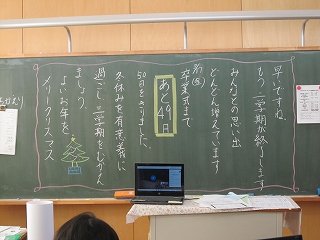 早いですね。
もう二学期が終了します
みんなとの思い出
どんどん増えています
卒業式まで
あと49日
50日をきりました。
冬休みを有意義に
過ごし、三学期をむかえ
ましょう。
よいお年を。
メリークリスマス